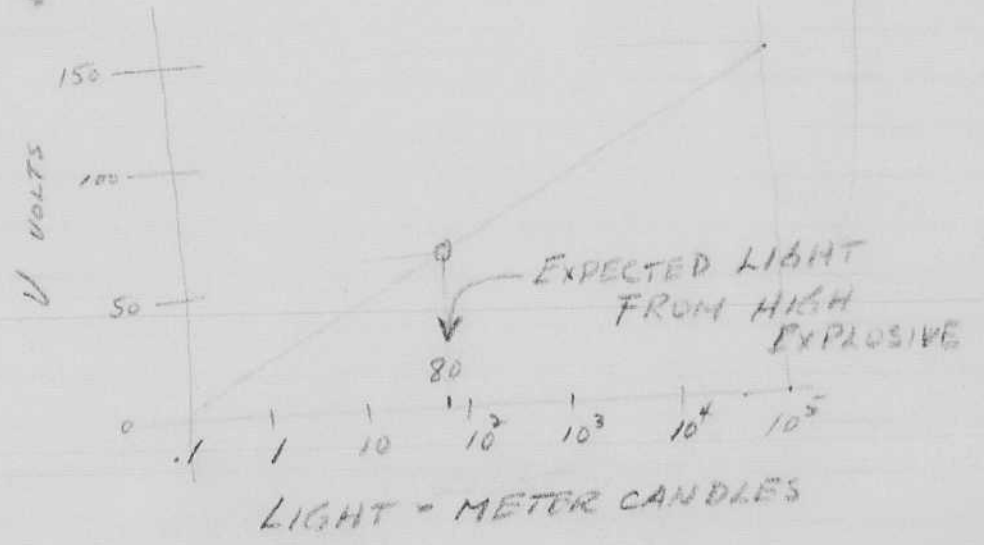 150
100
50
0
V VOLTS
EXPECTED LIGHT
FROM HIGH
EXPLOSIVE
80
.1 1 10 10² 10³ 10⁴ 10⁵
LIGHT - METER CANDLES